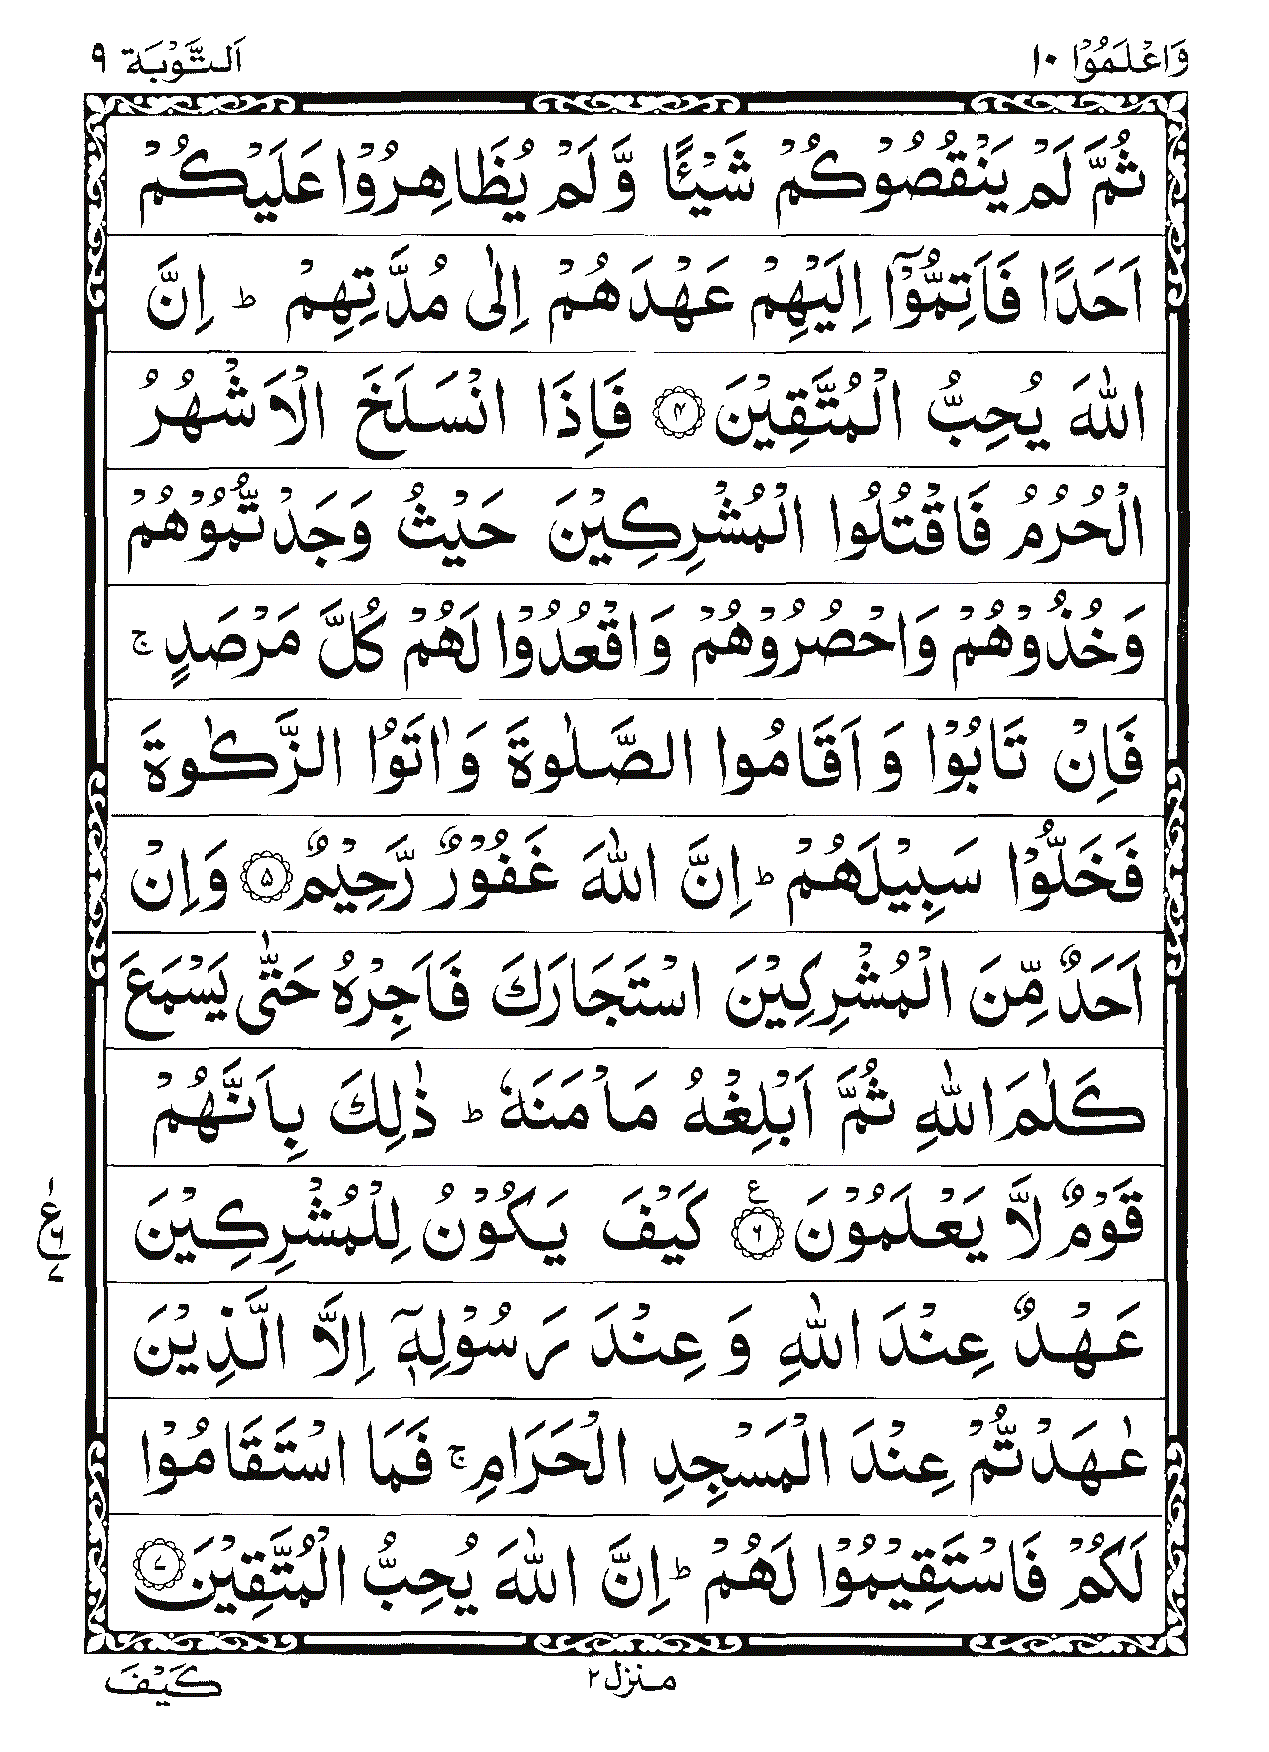 وَاعْلَمُوْۤا ١٠
اَلتَّوْبَة ٩
ثُمَّ لَمْ يَنْقُصُوْكُمْ شَيْـًٔا وَّ لَمْ يُظَاهِرُوْا عَلَيْكُمْ
اَحَدًا فَاَتِمُّوْۤا اِلَيْهِمْ عَهْدَهُمْ اِلٰى مُدَّتِهِمْ ؕ اِنَّ
اللّٰهَ يُحِبُّ الْمُتَّقِيْنَ ۝۴ فَاِذَا انْسَلَخَ الْاَشْهُرُ
الْحُرُمُ فَاقْتُلُوا الْمُشْرِكِيْنَ حَيْثُ وَجَدْتُّمُوْهُمْ
وَخُذُوْهُمْ وَاحْصُرُوْهُمْ وَاقْعُدُوْا لَهُمْ كُلَّ مَرْصَدٍ ۚ
فَاِنْ تَابُوْا وَ اَقَامُوا الصَّلٰوةَ وَ اٰتَوُا الزَّكٰوةَ
فَخَلُّوْا سَبِيْلَهُمْ ؕ اِنَّ اللّٰهَ غَفُوْرٌ رَّحِيْمٌ ۝۵ وَاِنْ
اَحَدٌ مِّنَ الْمُشْرِكِيْنَ اسْتَجَارَكَ فَاَجِرْهُ حَتّٰى يَسْمَعَ
كَلٰمَ اللّٰهِ ثُمَّ اَبْلِغْهُ مَاْمَنَهٗ ؕ ذٰلِكَ بِاَنَّهُمْ
قَوْمٌ لَّا يَعْلَمُوْنَ ۝۶ ع كَيْفَ يَكُوْنُ لِلْمُشْرِكِيْنَ
١ ع ۶ ٧
عَهْدٌ عِنْدَ اللّٰهِ وَ عِنْدَ رَسُوْلِهٖۤ اِلَّا الَّذِيْنَ
عٰهَدْتُّمْ عِنْدَ الْمَسْجِدِ الْحَرَامِ ۚ فَمَا اسْتَقَامُوْا
لَكُمْ فَاسْتَقِيْمُوْا لَهُمْ ؕ اِنَّ اللّٰهَ يُحِبُّ الْمُتَّقِيْنَ ۝۷
منزل ٢
كَيْفَ